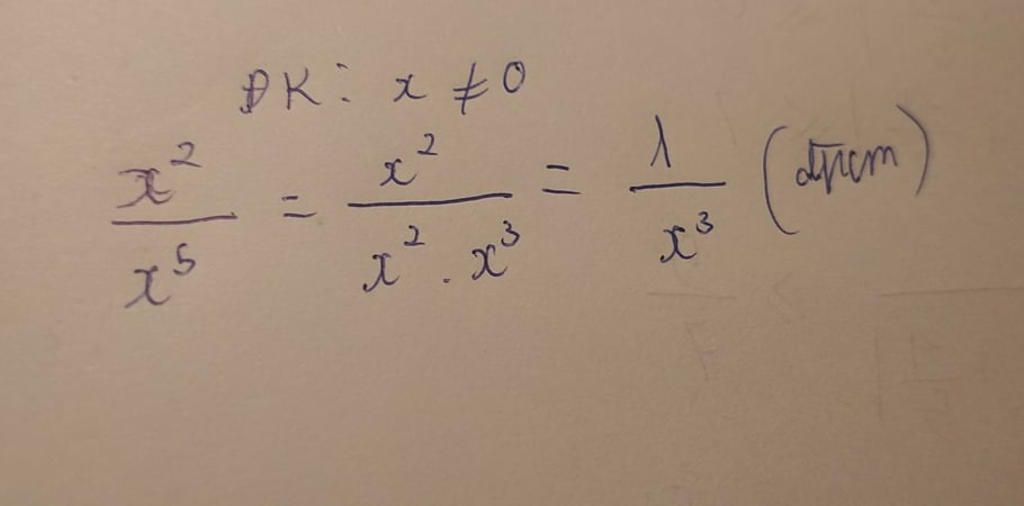 ĐK: x ≠ 0
x²/x⁵ = x²/(x² . x³) = 1/x³ (đpcm)